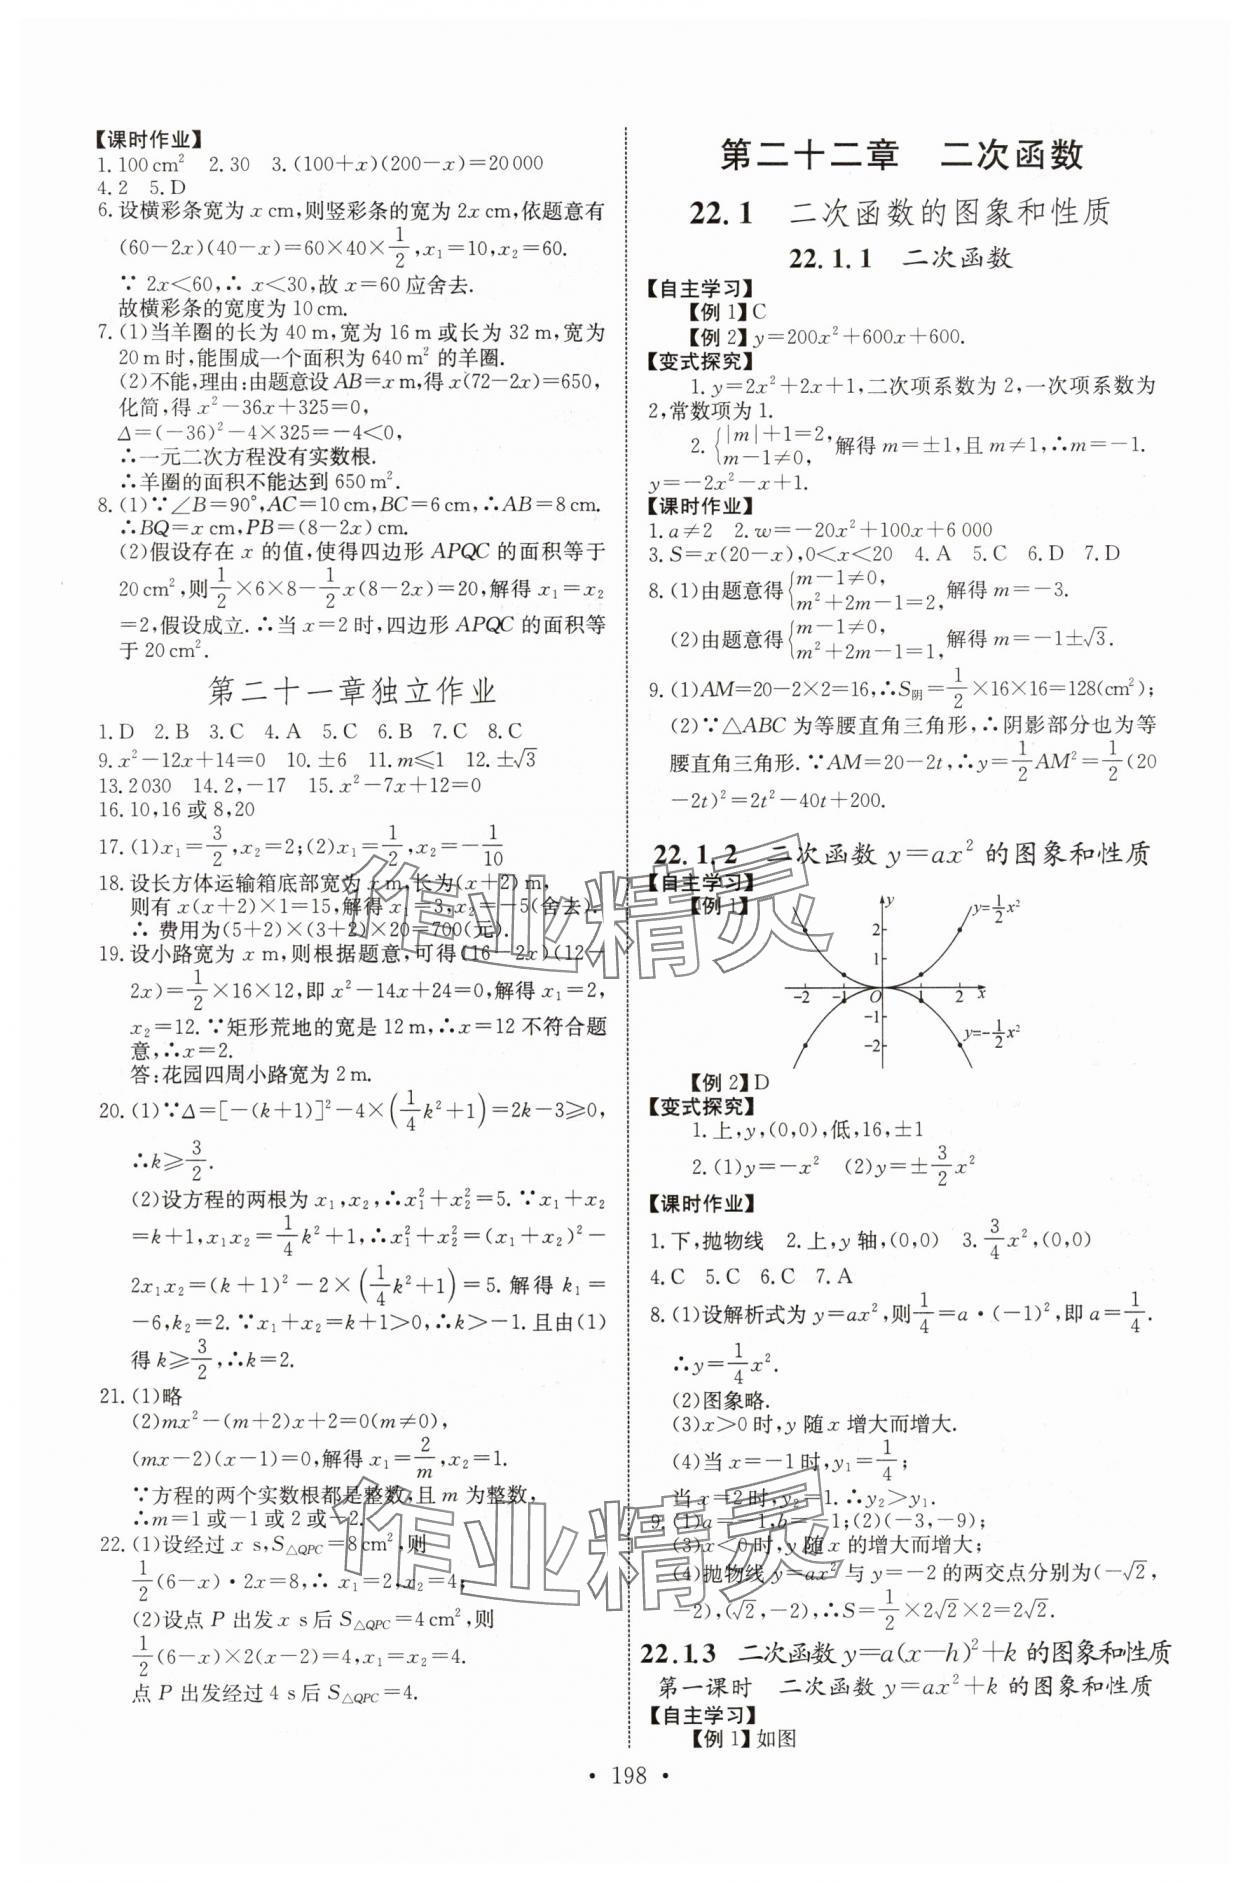 【课时作业】
1.100 cm²　2.30　3.(100+x)(200-x)=20 000
4.2　5.D
6.设横彩条宽为 x cm,则竖彩条的宽为 2x cm,依题意有
(60-2x)(40-x)=60×40×1/2,x₁=10,x₂=60.
∵ 2x<60,∴ x<30,故 x=60 应舍去.
故横彩条的宽度为 10 cm.
7.(1)当羊圈的长为 40 m,宽为 16 m 或长为 32 m,宽为
20 m 时,能围成一个面积为 640 m² 的羊圈.
(2)不能,理由:由题意设 AB=x m,得 x(72-2x)=650,
化简,得 x²-36x+325=0,
Δ=(-36)²-4×325=-4<0,
∴一元二次方程没有实数根.
∴羊圈的面积不能达到 650 m².
8.(1)∵∠B=90°,AC=10 cm,BC=6 cm,∴AB=8 cm.
∴BQ=x cm,PB=(8-2x) cm.
(2)假设存在 x 的值,使得四边形 APQC 的面积等于
20 cm²,则1/2×6×8-1/2x(8-2x)=20,解得 x₁=x₂
=2,假设成立.∴当 x=2 时,四边形 APQC 的面积等
于 20 cm².
第二十一章独立作业
1.D　2.B　3.C　4.A　5.C　6.B　7.C　8.C
9.x²-12x+14=0　10.±6　11.m≤1　12.±√3
13.2 030　14.2,-17　15.x²-7x+12=0
16.10,16 或 8,20
17.(1)x₁=3/2,x₂=2;(2)x₁=1/2,x₂=-1/10
18.设长方体运输箱底部宽为 x m,长为(x+2) m,
则有 x(x+2)×1=15,解得 x₁=3,x₂=-5(舍去).
∴ 费用为(5+2)×(3+2)×20=700(元).
19.设小路宽为 x m,则根据题意,可得(16-2x)(12-
2x)=1/2×16×12,即 x²-14x+24=0,解得 x₁=2,
x₂=12.∵矩形荒地的宽是 12 m,∴x=12 不符合题
意,∴x=2.
答:花园四周小路宽为 2 m.
20.(1)∵Δ=[-(k+1)]²-4×(1/4k²+1)=2k-3≥0,
∴k≥3/2.
(2)设方程的两根为 x₁,x₂,∴x₁²+x₂²=5.∵x₁+x₂
=k+1,x₁x₂=1/4k²+1,∴x₁²+x₂²=(x₁+x₂)²-
2x₁x₂=(k+1)²-2×(1/4k²+1)=5.解得 k₁=
-6,k₂=2.∵x₁+x₂=k+1>0,∴k>-1.且由(1)
得 k≥3/2,∴k=2.
21.(1)略
(2)mx²-(m+2)x+2=0(m≠0),
(mx-2)(x-1)=0,解得 x₁=2/m,x₂=1.
∵方程的两个实数根都是整数,且 m 为整数,
∴m=1 或-1 或 2 或-2.
22.(1)设经过 x s,S△QPC=8 cm²,则
1/2(6-x)·2x=8,∴ x₁=2,x₂=4;
(2)设点 P 出发 x s后 S△QPC=4 cm²,则
1/2(6-x)×2(x-2)=4,x₁=x₂=4.
点 P 出发经过 4 s后 S△QPC=4.
第二十二章　二次函数
22.1　二次函数的图象和性质
22.1.1　二次函数
【自主学习】
【例 1】C
【例 2】y=200x²+600x+600.
【变式探究】
1.y=2x²+2x+1,二次项系数为 2,一次项系数为
2,常数项为 1.
2.{|m|+1=2, m-1≠0, 解得 m=±1,且 m≠1,∴m=-1.
y=-2x²-x+1.
【课时作业】
1.a≠2　2.w=-20x²+100x+6 000
3.S=x(20-x),0<x<20　4.A　5.C　6.D　7.D
8.(1)由题意得{m-1≠0, m²+2m-1=2, 解得 m=-3.
(2)由题意得{m-1≠0, m²+2m-1=1, 解得 m=-1±√3.
9.(1)AM=20-2×2=16,∴S阴=1/2×16×16=128(cm²);
(2)∵△ABC 为等腰直角三角形,∴阴影部分也为等
腰直角三角形.∵AM=20-2t,∴y=1/2AM²=1/2(20
-2t)²=2t²-40t+200.
22.1.2　二次函数 y=ax² 的图象和性质
【自主学习】
【例 1】
y
y=1/2x²
2
1
-2 -1 O 1 2 x
-1
-2
y=-1/2x²
【例 2】D
【变式探究】
1.上,y,(0,0),低,16,±1
2.(1)y=-x²　(2)y=±3/2x²
【课时作业】
1.下,抛物线　2.上,y 轴,(0,0)　3.3/4x²,(0,0)
4.C　5.C　6.C　7.A
8.(1)设解析式为 y=ax²,则1/4=a·(-1)²,即 a=1/4.
∴y=1/4x².
(2)图象略.
(3)x>0 时,y 随 x 增大而增大.
(4)当 x=-1 时,y₁=1/4;
当 x=2时,y₂=1.∴y₂>y₁.
9.(1)a=-1,b=-1;(2)(-3,-9);
(3)x<0 时,y 随 x 的增大而增大;
(4)抛物线 y=ax² 与 y=-2 的两交点分别为(-√2,
-2),(√2,-2),∴S=1/2×2√2×2=2√2.
22.1.3　二次函数 y=a(x-h)²+k 的图象和性质
第一课时　二次函数 y=ax²+k 的图象和性质
【自主学习】
【例 1】如图
· 198 ·
作业精灵
作业精灵